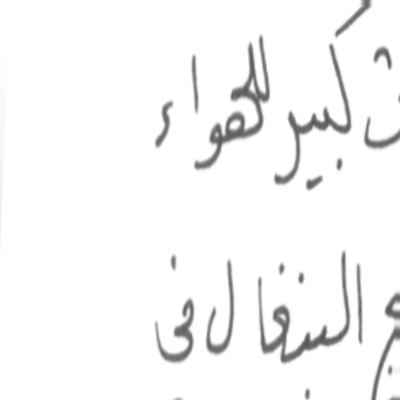 كبير للهواء
البنغال في